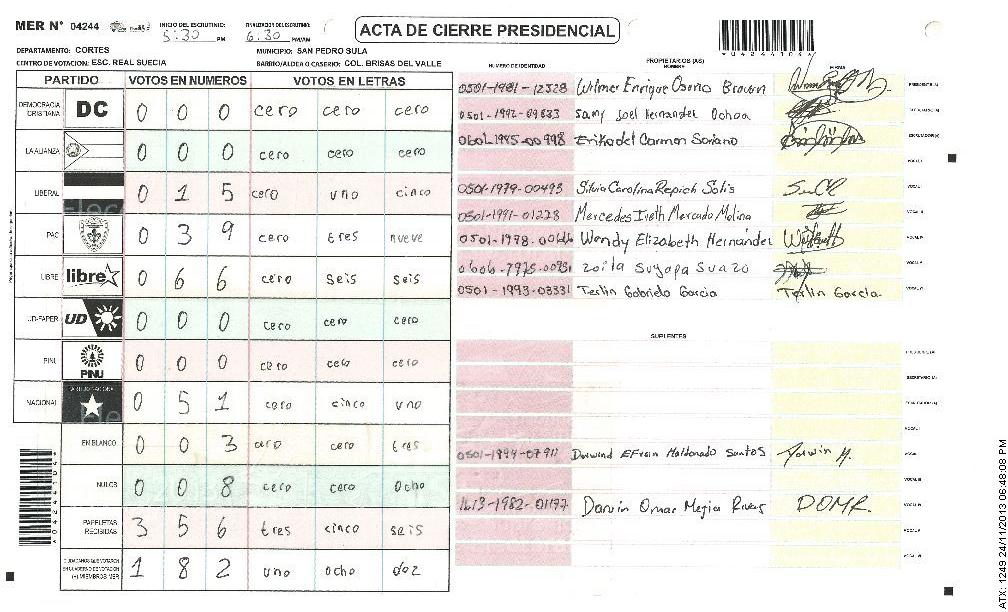 MER N° 04244
INICIO DEL ESCRUTINIO: 5:30 PM
FINALIZACION DEL ESCRUTINIO: 6:30 PM/AM
ACTA DE CIERRE PRESIDENCIAL
04244104
DEPARTAMENTO: CORTES
MUNICIPIO: SAN PEDRO SULA
CENTRO DE VOTACION: ESC. REAL SUECIA
BARRIO/ALDEA O CASERIO: COL. BRISAS DEL VALLE
PARTIDO VOTOS EN NUMEROS VOTOS EN LETRAS
DEMOCRACIA CRISTIANA DC 0 0 0 cero cero cero
LA ALIANZA 0 0 0 cero cero cero
LIBERAL 0 1 5 cero uno cinco
PAC 0 3 9 cero tres nueve
LIBRE libre 0 6 6 cero seis seis
UD-FAPER UD 0 0 0 cero cero cero
PINU PINU 0 0 0 cero cero cero
NACIONAL PARTIDO NACIONAL 0 5 1 cero cinco uno
EN BLANCO 0 0 3 cero cero tres
NULOS 0 0 8 cero cero ocho
PAPELETAS RECIBIDAS 3 5 6 tres cinco seis
CIUDADANOS QUE VOTARON EN CUADERNO DE VOTACION (+) MIEMBROS MER 1 8 2 uno ocho doz
NUMERO DE IDENTIDAD PROPIETARIOS (AS) NOMBRE FIRMA
0501-1981-12328 Wilmer Enrique Osorio Brown PRESIDENTE (A)
0501-1992-09633 Samy Joel Hernandez Ochoa SECRETARIO (A)
0602-1985-00998 Erika del Carmen Soriano ESCRUTADOR (A)
VOCAL I
0501-1979-00493 Silvia Carolina Repich Solis VOCAL
0501-1991-01228 Mercedes Ireth Mercado Molina VOCAL
0501-1998-00626 Wendy Elizabeth Hernández VOCAL
Zoila Suyapa Suazo VOCAL
0501-1993-03331 Terlin Gabriela Garcia Terlin Garcia. VOCAL
SUPLENTES
PRESIDENTE (A)
SECRETARIO (A)
ESCRUTADOR (A)
VOCAL I
0501-1994-07911 Darwind Efrain Maldonado Santos Darwin M. VOCAL
VOCAL
1613-1982-01177 Darvin Omar Mejia Rivas DOMR. VOCAL
VOCAL
VOCAL
ATX: 1249 24/11/2013 06:48:08 PM